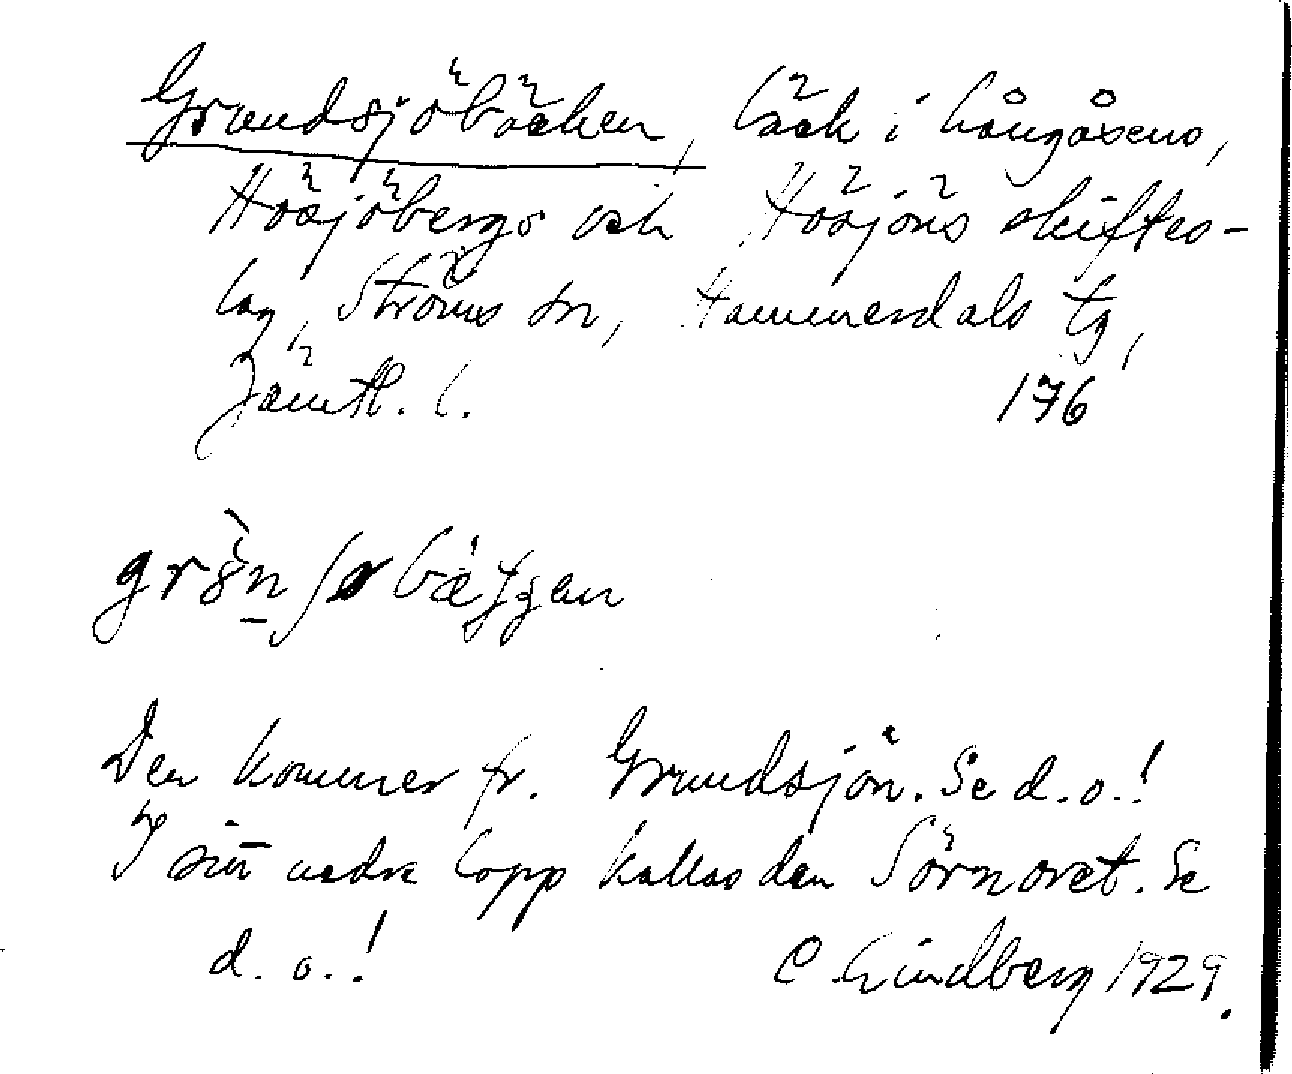 Grundsjöbäcken, bäck i Långåsens,
Hösjöbergs och Hösjöns skiftes-
lag, Ströms sn, Hammerdals tg,
Jämtl. l. 176
Den kommer fr. Grundsjön. Se d.o.!
I sitt nedre lopp kallas den Sörnoret. Se
d.o.! C Lindberg 1929.